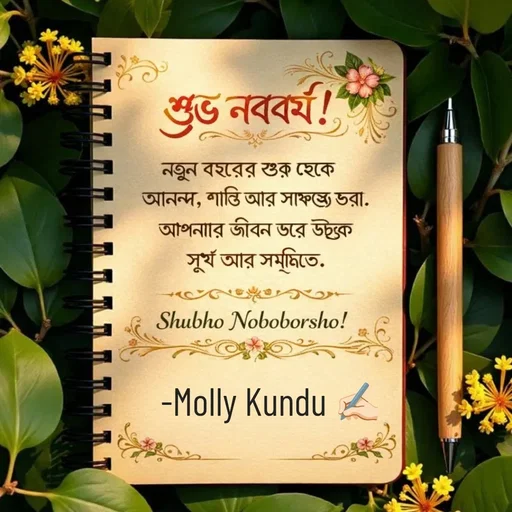 শুভ নববর্ষ!
নতুন বহরের শুরু হেকে
আনন্দ, শান্তি আর ভরা.
আপনার জীবন ভরে
সুখ আর
Shubho Noboborsho!
-Molly Kundu